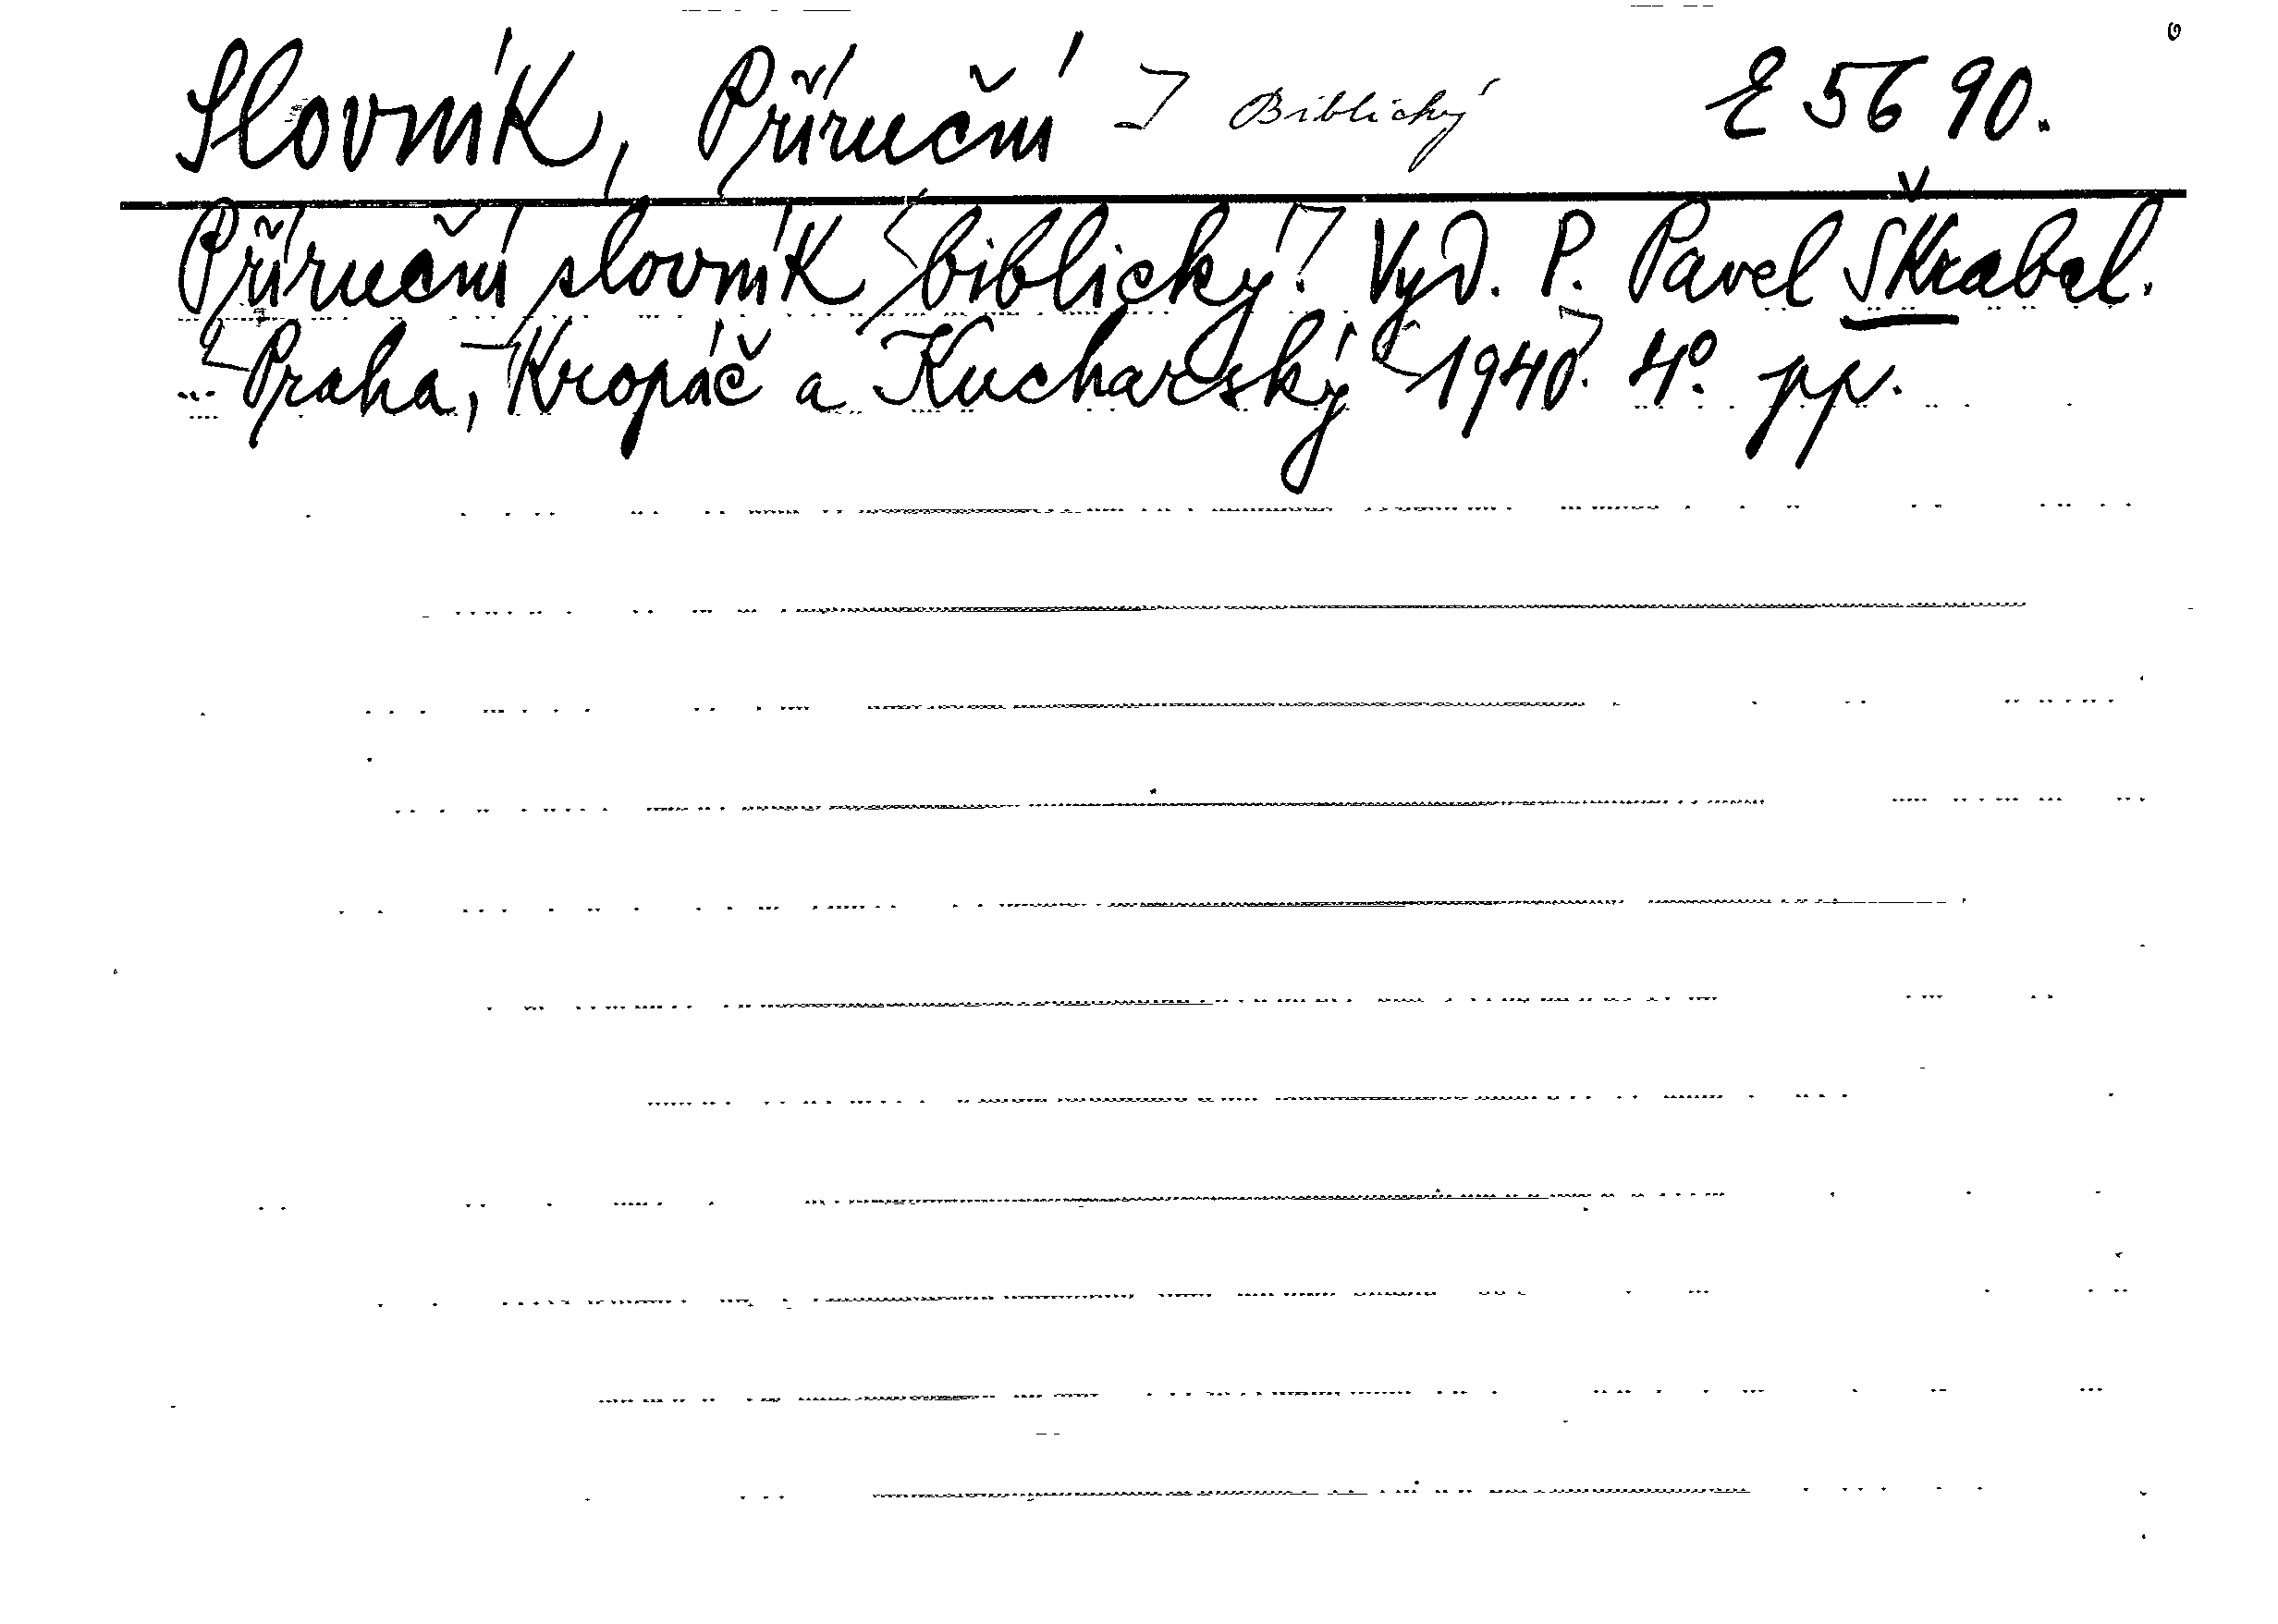 Slovník, Příruční ] Biblický E 5690.
Příruční slovník [biblický.] Vyd. P. Pavel Škrabal.
[Praha,] [Kropáč a Kucharský [1940]. 4°. pp.